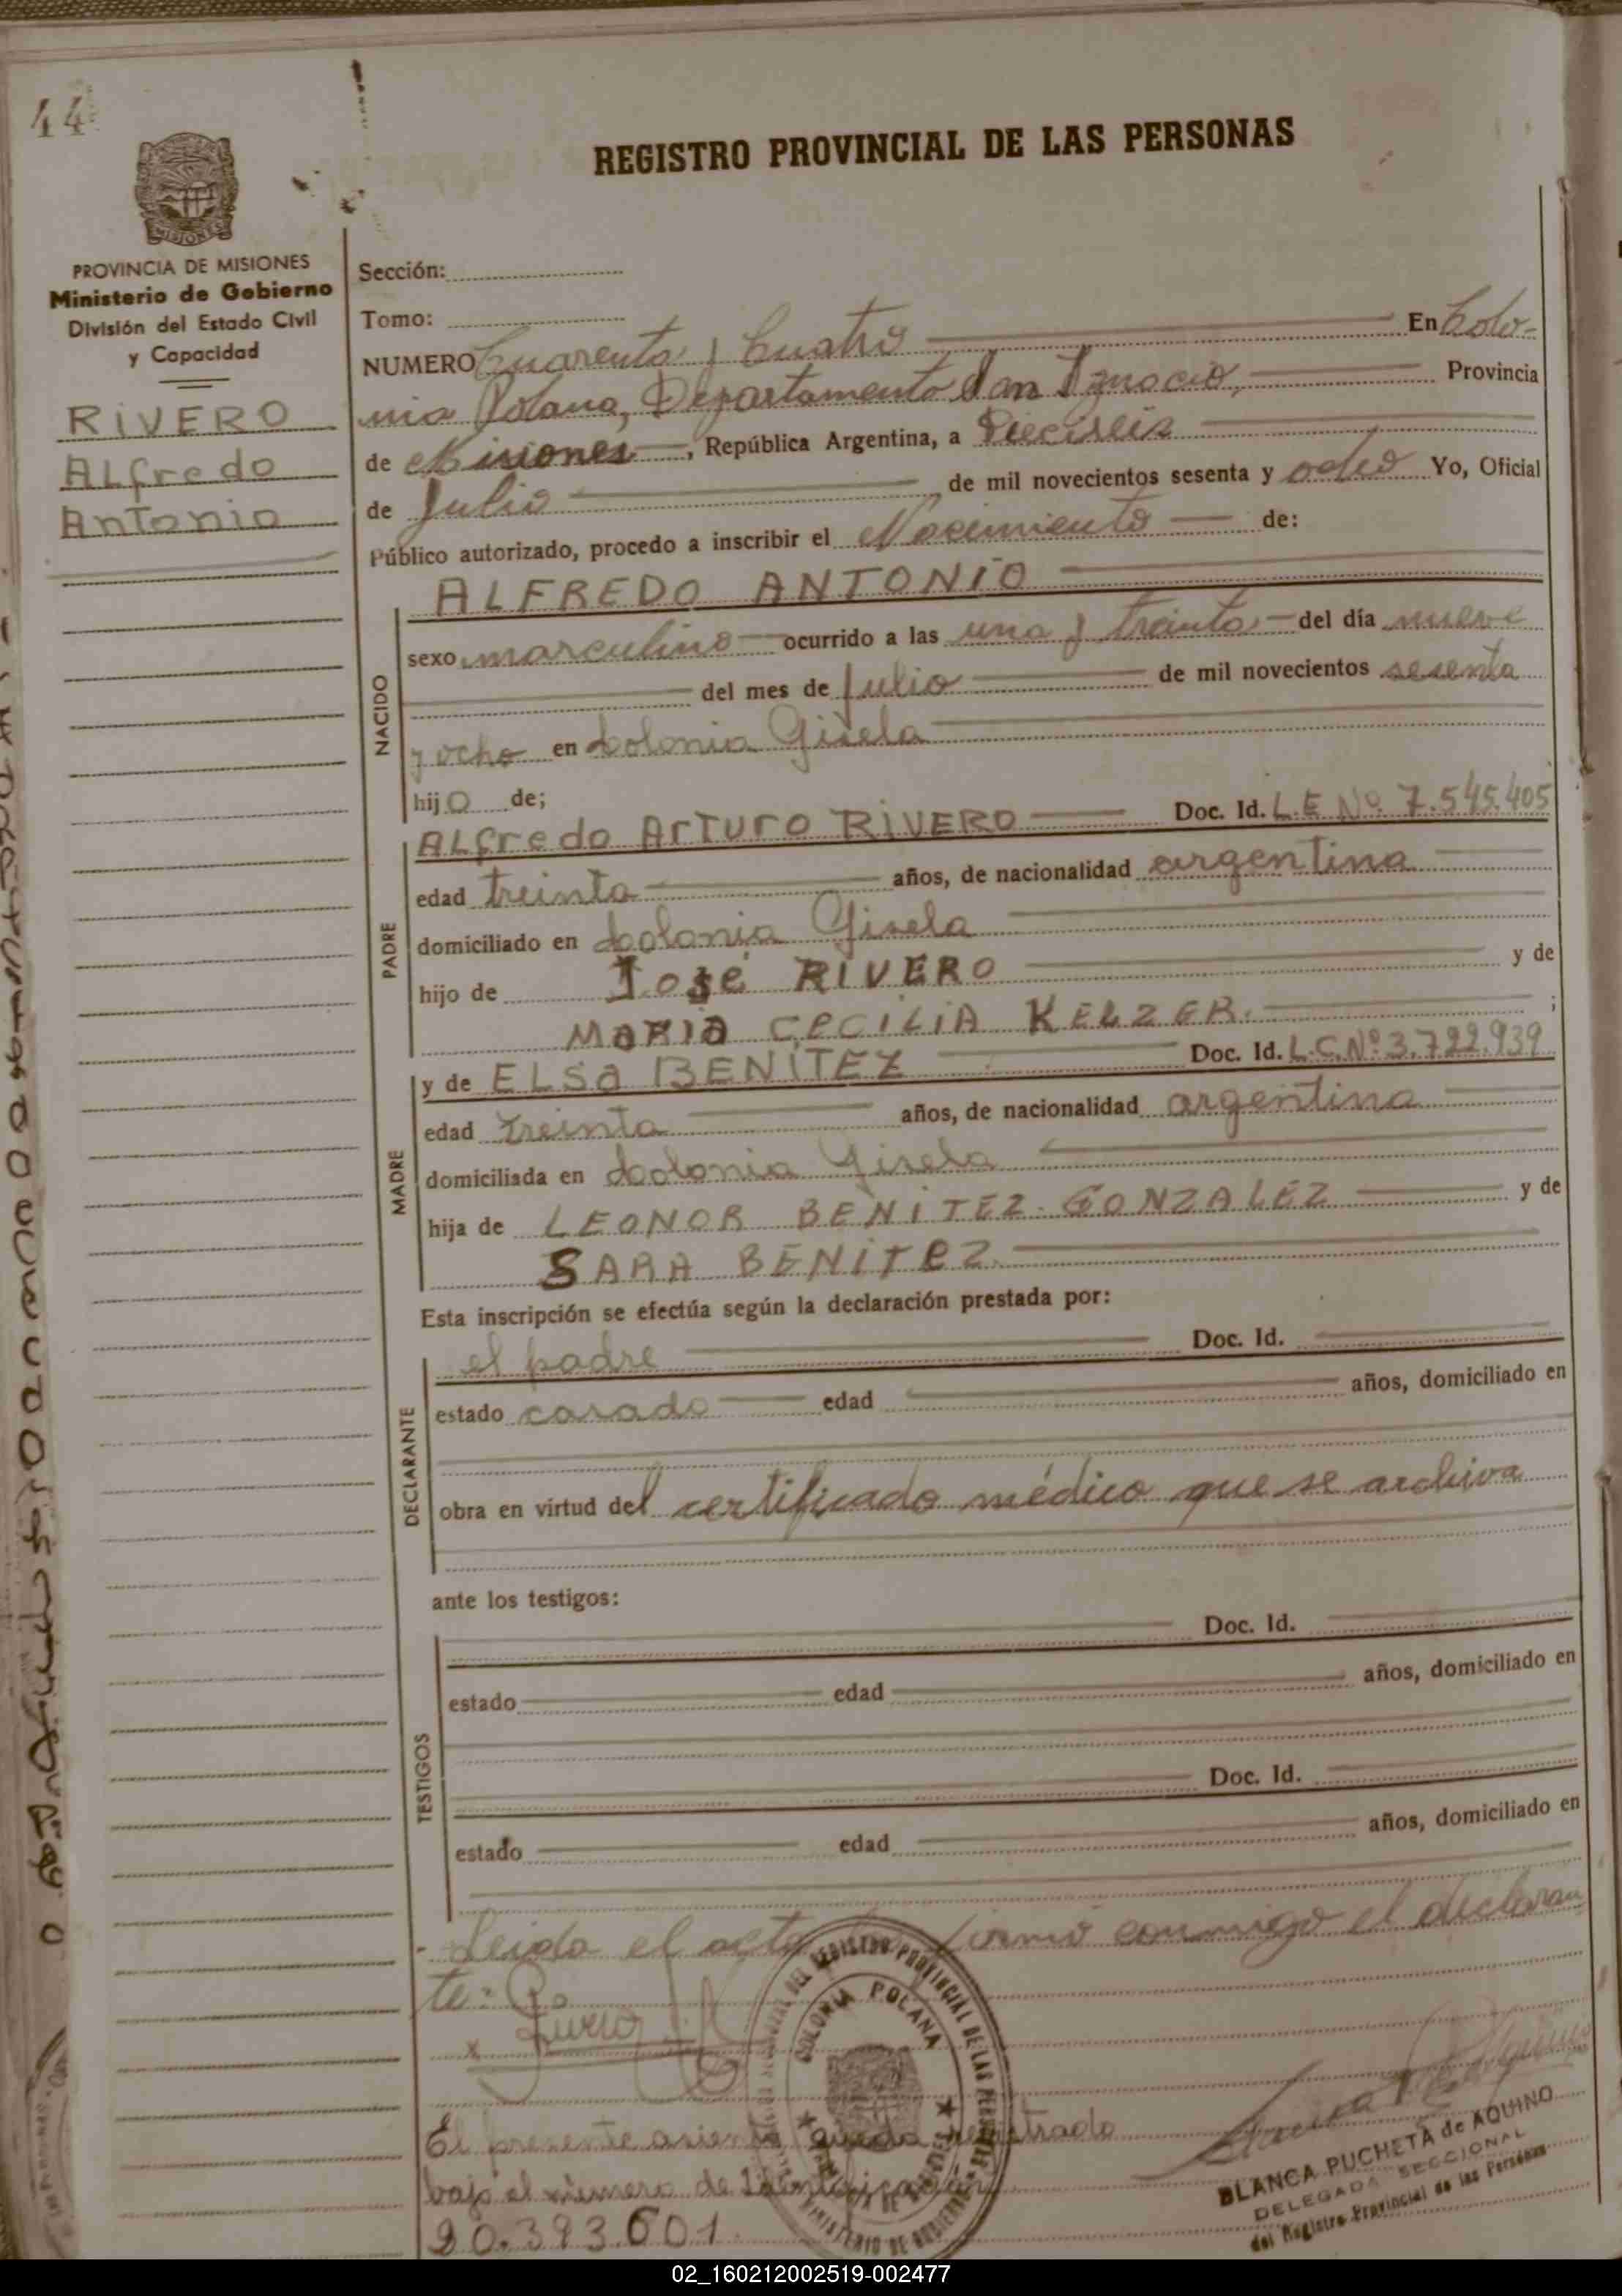 44
REGISTRO PROVINCIAL DE LAS PERSONAS
MISIONES
PROVINCIA DE MISIONES
Ministerio de Gobierno
División del Estado Civil
y Capacidad
RIVERO
Alfredo
Antonio
Sección:
Tomo:
NUMERO Cuarenta y Cuatro En Colo-
nia Polana, Departamento San Ignacio, Provincia
de Misiones, República Argentina, a Dieciseis
de Julio de mil novecientos sesenta y ocho Yo, Oficial
Público autorizado, procedo a inscribir el Nacimiento de:
NACIDO
ALFREDO ANTONIO
sexo masculino ocurrido a las una y treinta del día nueve
del mes de Julio de mil novecientos sesenta
y ocho en Colonia Gisela
hijo de;
PADRE
Alfredo Arturo RIVERO Doc. Id. L.E Nº. 7.545.405
edad treinta años, de nacionalidad argentina
domiciliado en Colonia Gisela
hijo de José RIVERO y de
MARIA CECILIA KELZER. ;
MADRE
y de ELSA BENITEZ Doc. Id. L.C.Nº.3.722.939
edad treinta años, de nacionalidad argentina
domiciliada en Colonia Gisela
hija de LEONOR BENITEZ GONZALEZ y de
SARA BENITEZ.
Esta inscripción se efectúa según la declaración prestada por:
DECLARANTE
el padre Doc. Id.
estado casado edad años, domiciliado en
obra en virtud del certificado médico que se archiva
ante los testigos:
TESTIGOS
Doc. Id.
estado edad años, domiciliado en
Doc. Id.
estado edad años, domiciliado en
Leida el acta firmó conmigo el declaran
te:
COLONIA POLANA
El presente asiento queda registrado
bajo el número de Identificación
20.393.601.
BLANCA PUCHETA de AQUINO
DELEGADA SECCIONAL
del Registro Provincial de las Personas
02_160212002519-002477